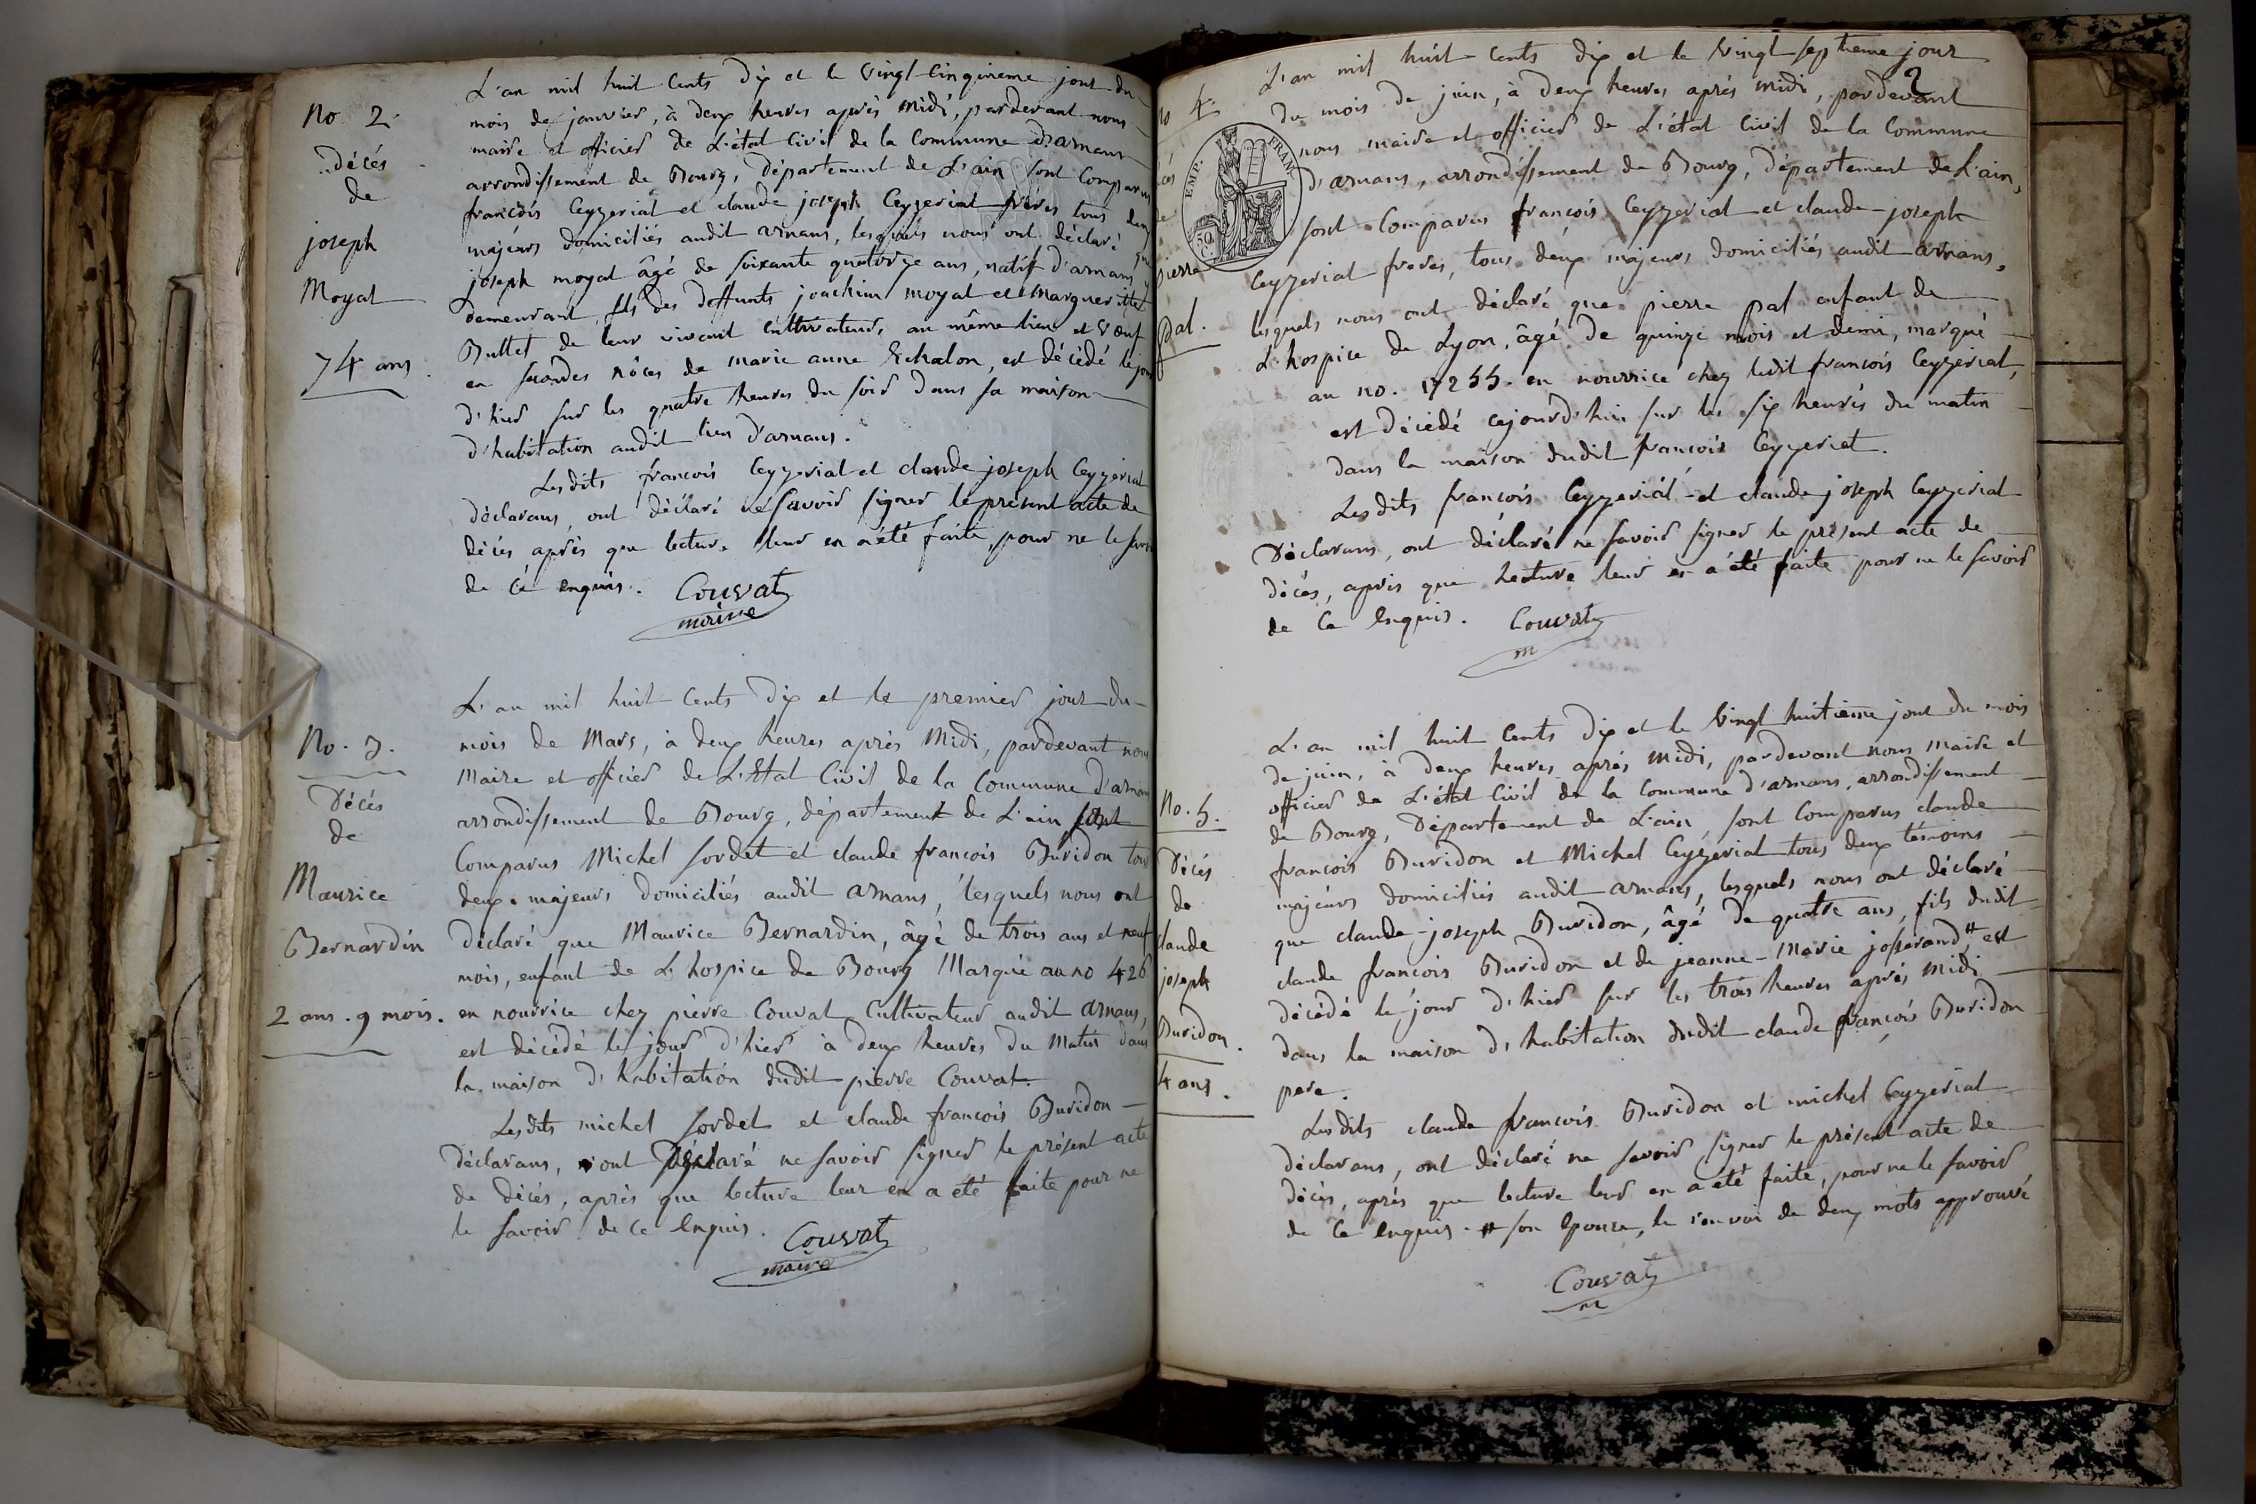 No. 2.
Décés
de
joseph
Moyat
74 ans.
L'an mil huit Cents Dix et le Vingt Cinquieme jour du
mois de janvier, à deux heures après Midi, pardevant nous
maire et officier de L'état Civil de la Commune d'arnans
arrondissement de Bourg, Département de L'ain sont Comparus
francois Ceyzeriat et claude joseph Ceyzeriat freres tous deux
majeurs domiciliés audit arnans, lesquels nous ont déclaré que
joseph moyat âgé de soixante quatorze ans, natif d'arnans y
demeurant, fils des deffunts joachim moyat et Margueritte
Buttet de leur vivant cultivateurs, au même lieu et veuf
en secondes nôces de marie anne Echalon, est décédé le jour
d'hier sur les quatre heures du soir dans sa maison
d'habitation audit lieu d'arnans.
Lesdits francois Ceyzeriat et claude joseph Ceyzeriat
déclarans, ont déclaré ne savoir signer le présent acte de
décés après que lecture leur en a été faite, pour ne le savoir
de ce enquis. Couvat
maire
No. 3.
Décés
de
Maurice
Bernardin
2 ans. 9 mois.
L'an mil huit Cents Dix et le premier jour du
mois de Mars, à deux heures après Midi, pardevant nous
Maire et officier de L'Etat Civil de la Commune d'arnans
arrondissement de Bourg, département de L'ain sont
Comparus Michel sordet et claude françois Buridon tous
deux majeurs domiciliés audit arnans, lesquels nous ont
Déclaré que Maurice Bernardin, âgé de trois ans et neuf
mois, enfant de L'hospice de Bourg Marqué au no 426
en nourrice chez pierre Couvat Cultivateur audit arnans,
est décédé le jour d'hier à deux heures du Matin dans
la maison d'habitation dudit pierre Couvat.
Lesdits michel sordet et claude françois Buridon
Déclarans, ont déclaré ne savoir signer le présent acte
de décés, après que lecture leur en a été faite pour ne
le savoir de ce Enquis. Couvat
maire
2
no 4.
EMP. FRANC.
50 C.
de
pierre
pal.
L'an mil huit Cents dix et le Vingt septieme jour
du mois de juin, à deux heures aprés midi, pardevant
nous maire et officier de L'état Civil de la Commune
d'arnans, arrondissement de Bourg, Département de L'ain,
sont Comparus francois Ceyzeriat et claude joseph
Ceyzeriat freres, tous deux majeurs domiciliés audit arnans,
lesquels nous ont déclaré que pierre pal enfant de
L'hospice de Lyon, âgé de quinze mois et demi, marqué
au no. 17255. en nourrice chez ledit francois Ceyzeriat,
est décédé cejourd'hui sur les six heures du matin
dans la maison dudit francois Ceyzeriat.
Lesdits francois Ceyzeriat et claude joseph Ceyzeriat
Déclarans, ont déclaré ne savoir signer le présent acte de
décés, après que lecture leur en a été faite pour ne le savoir
de Ce Enquis. Couvat
m
No. 5.
Décés
de
claude
joseph
Buridon.
4 ans.
L'an mil huit Cents Dix et le Vingt huitieme jour du mois
de juin, à deux heures aprés Midi, pardevant nous Maire et
officier de L'état Civil de la Commune d'arnans, arrondissement
de Bourg, Département de L'ain, sont Comparus claude
françois Buridon et Michel Ceyzeriat tous deux témoins
majeurs domiciliés audit arnans, lesquels nous ont déclaré
que claude joseph Buridon, âgé de quatre ans, fils dudit
claude françois Buridon et de jeanne-Marie josserand # est
décédé le jour d'hier sur les trois heures aprés Midi
dans la maison d'habitation dudit claude françois Buridon
pere.
Lesdits claude francois Buridon et michel Ceyzeriat
déclarans, ont déclaré ne savoir signer le présent acte de
décés, aprés que lecture leur en a été faite, pour ne le savoir
de Ce enquis. # son Epouse, le renvoi de deux mots approuvé
Couvat
m